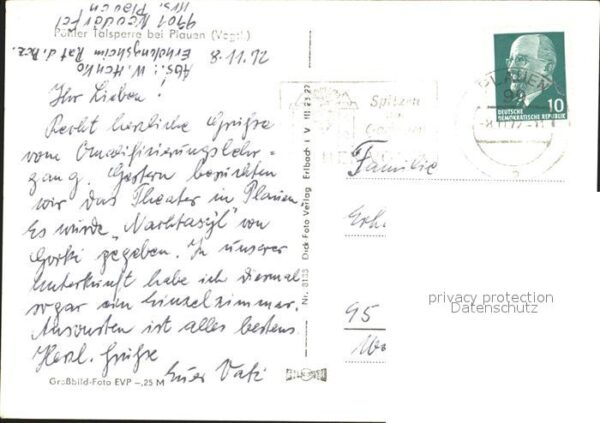 Pöhler Talsperre bei Plauen (Vogtl.)
9901 Neudörfel
Krs. Plauen
Erholungsheim Rat d. Bez.
Abs.: W. Henko
8.11.72
Ihr Lieben!
Recht herzliche Grüße
vom Qualifizierungslehr-
gang. Gestern besuchten
wir das Theater in Plauen.
Es wurde "Nachtasyl" von
Gorki gegeben. In unserer
Unterkunft habe ich diesmal
sogar ein Einzelzimmer.
Ansonsten ist alles bestens.
Herzl. Grüße
Euer Vati
Großbild-Foto EVP -,25 M
Nr. 8133 Dick Foto Verlag Erlbach i V III 23 27
Spitzen
PLAUEN
99
10
DEUTSCHE
DEMOKRATISCHE REPUBLIK
Familie
Erh.
95
privacy protection
Datenschutz